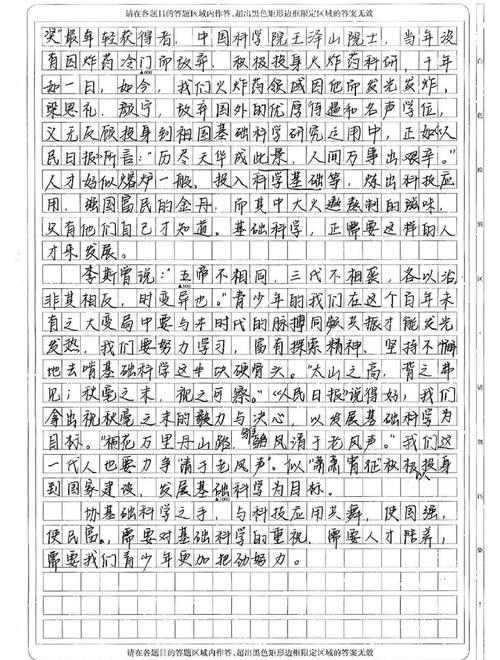 请在各题目的答题区域内作答,超出黑色矩形边框限定区域的答案无效
奖最年轻获得者,中国科学院王泽山院士,当年没
有因炸药冷门而放弃,积极投身火炸药科研,十年
▲600
如一日,如今,我们火炸药领域因他而发光发炸,
梁思礼、颜宁,放弃国外的优厚待遇和名声学位,
义无反顾投身到祖国基础科学研究应用中,正如《人
民日报》所言:"历尽天华成此景,人间万事出艰辛。"
人才好似熔炉一般,投入科学基础等,炼出科技应
用,强国富民的金丹,而其中大火熬熬制的滋味,
只有他们自己才知道。基础科学,正需要这样的人
才来发展。
▲800
李斯曾说:"五帝不相同,三代不相袭,各以治,
非其相反,时变异也。"青少年的我们在这个百年未
有之大变局中要与本时代的脉搏同频共振才能发光
发热,我们要努力学习,富有探索精神,坚持不懈
地去啃基础科学这块硬骨头。"太山之高,背之弗
见;秋毫之末,视之可察。"《人民日报》说得好,我们
拿出视秋毫之末的毅力与决心,以发展基础科学为
目标。"桐花万里丹山路,雏凤清于老凤声。"我们这
一代人也要力争"清于老凤声"。似"嵩高青征"积极投身
▲1000
到国家建设,以发展基础科学为目标。
协基础科学之手,与科技应用共舞,使国强,
使民富。需要对基础科学的重视,需要人才陪养,
需要我们青少年更加把劲努力。
请在各题目的答题区域内作答,超出黑色矩形边框限定区域的答案无效